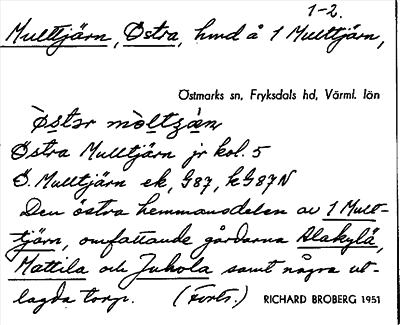 1-2.
Multtjärn, Östra, hmd å 1 Multtjärn,
Östmarks sn, Fryksdals hd, Värml. län
Östra Multtjärn jr kol. 5
Ö. Multtjärn ek, G87, kG87N
Den östra hemmansdelen av 1 Mult-
tjärn, omfattande gårdarna Alakylä,
Mattila och Jukola samt några ut-
lagda torp. (Forts.) RICHARD BROBERG 1951